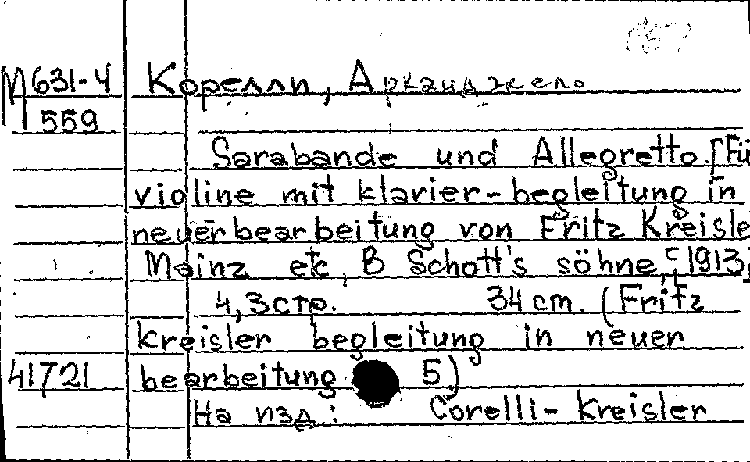 М 631-4 Корелли, Арканджело
559
Sarabande und Allegretto. [Fü
violine mit klavier-begleitung in
neuerbearbeitung von Fritz Kreisle
Mainz etc, B Schott's söhne, c 1913
4, 3 стр. 34 cm. (Fritz
kreisler begleitung in neuer
41721 bearbeitung 5)
На изд: Corelli-Kreisler